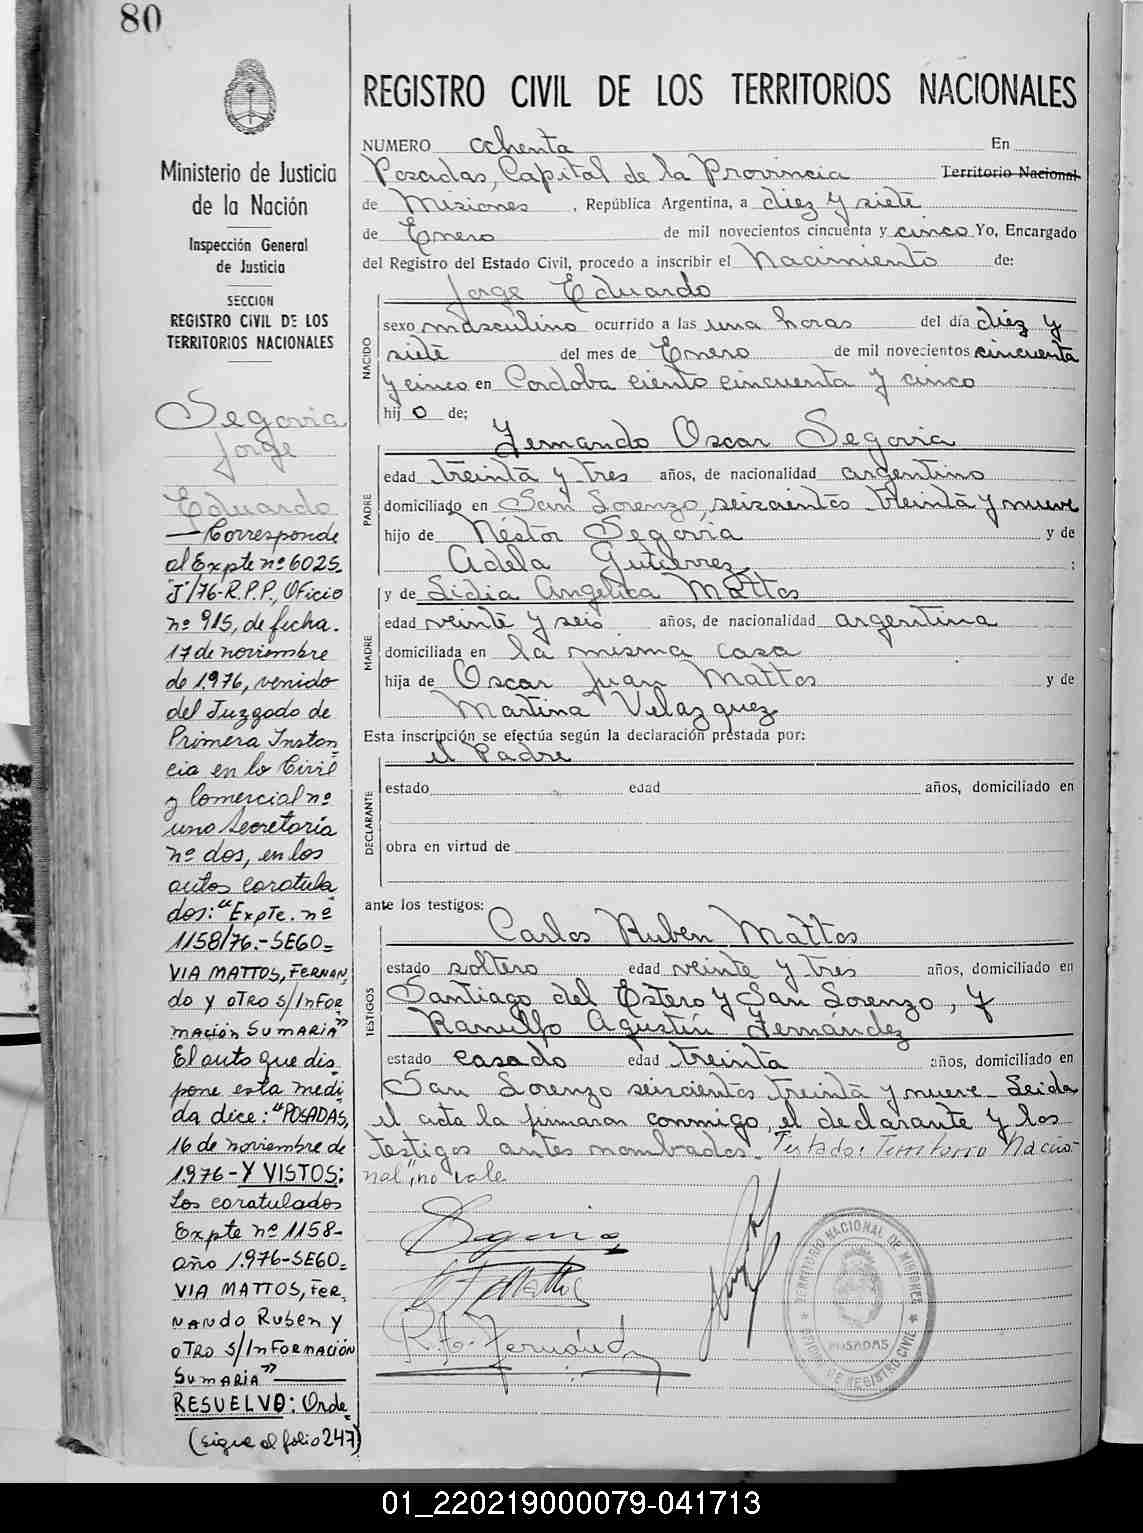 80
Ministerio de Justicia
de la Nación
Inspección General
de Justicia
SECCION
REGISTRO CIVIL DE LOS
TERRITORIOS NACIONALES
Segovia
Jorge
Eduardo
— Corresponde
al Expte nº 6025
"J"/76-R.P.P., Oficio
nº 915, de fecha.
17 de noviembre
de 1.976, venido
del Juzgado de
Primera Instan
cia en lo Civil
y Comercial nº
uno Secretaría
nº dos, en los
autos caratula
dos: "Expte. nº
1158/76.- SEGO=
VIA MATTOS, FERNAN,
do y OTRO S/INFOR
MACIÓN SUMARIA"
El auto que dis,
pone esta medi
da dice: "POSADAS,
16 de noviembre de
1.976 - Y VISTOS:
Los caratulados
Expte nº 1158-
año 1.976-SEGO=
VIA MATTOS, FER,
NANDO Ruben y
OTRO S/INFORMACIÓN
SUMARIA"
RESUELVO: Orde,
(sigue al folio 247)
REGISTRO CIVIL DE LOS TERRITORIOS NACIONALES
NUMERO ochenta En
Posadas, Capital de la Provincia Territorio Nacional
de Misiones, República Argentina, a diez y siete
de Enero de mil novecientos cincuenta y cinco Yo, Encargado
del Registro del Estado Civil, procedo a inscribir el Nacimiento de:
Jorge Eduardo
NACIDO
sexo masculino ocurrido a las una horas del día diez y
siete del mes de Enero de mil novecientos cincuenta
y cinco en Cordoba ciento cincuenta y cinco
hijo de;
Fernando Oscar Segovia
PADRE
edad treinta y tres años, de nacionalidad argentino
domiciliado en San Lorenzo, seiscientos treinta y nueve
hijo de Néstor Segovia y de
Adela Gutierrez ;
y de Lidia Angélica Mattos
MADRE
edad veinte y seis años, de nacionalidad argentina
domiciliada en la misma casa
hija de Oscar Juan Mattos y de
Martina Velazquez
Esta inscripción se efectúa según la declaración prestada por:
el Padre
DECLARANTE
estado edad años, domiciliado en
obra en virtud de
ante los testigos:
Carlos Rubén Mattos
TESTIGOS
estado soltero edad veinte y tres años, domiciliado en
Santiago del Estero y San Lorenzo, y
Ranulfo Agustín Fernández
estado casado edad treinta años, domiciliado en
San Lorenzo seiscientos treinta y nueve - Leida
el acta la firmaron conmigo, el declarante y los
testigos antes nombrados. Testado: Territorio Nacio-
nal", no vale
Segovia
Mattos
R. A. Fernández
TERRITORIO NACIONAL DE MISIONES
POSADAS
OFICINA DE REGISTRO CIVIL
01_220219000079-041713